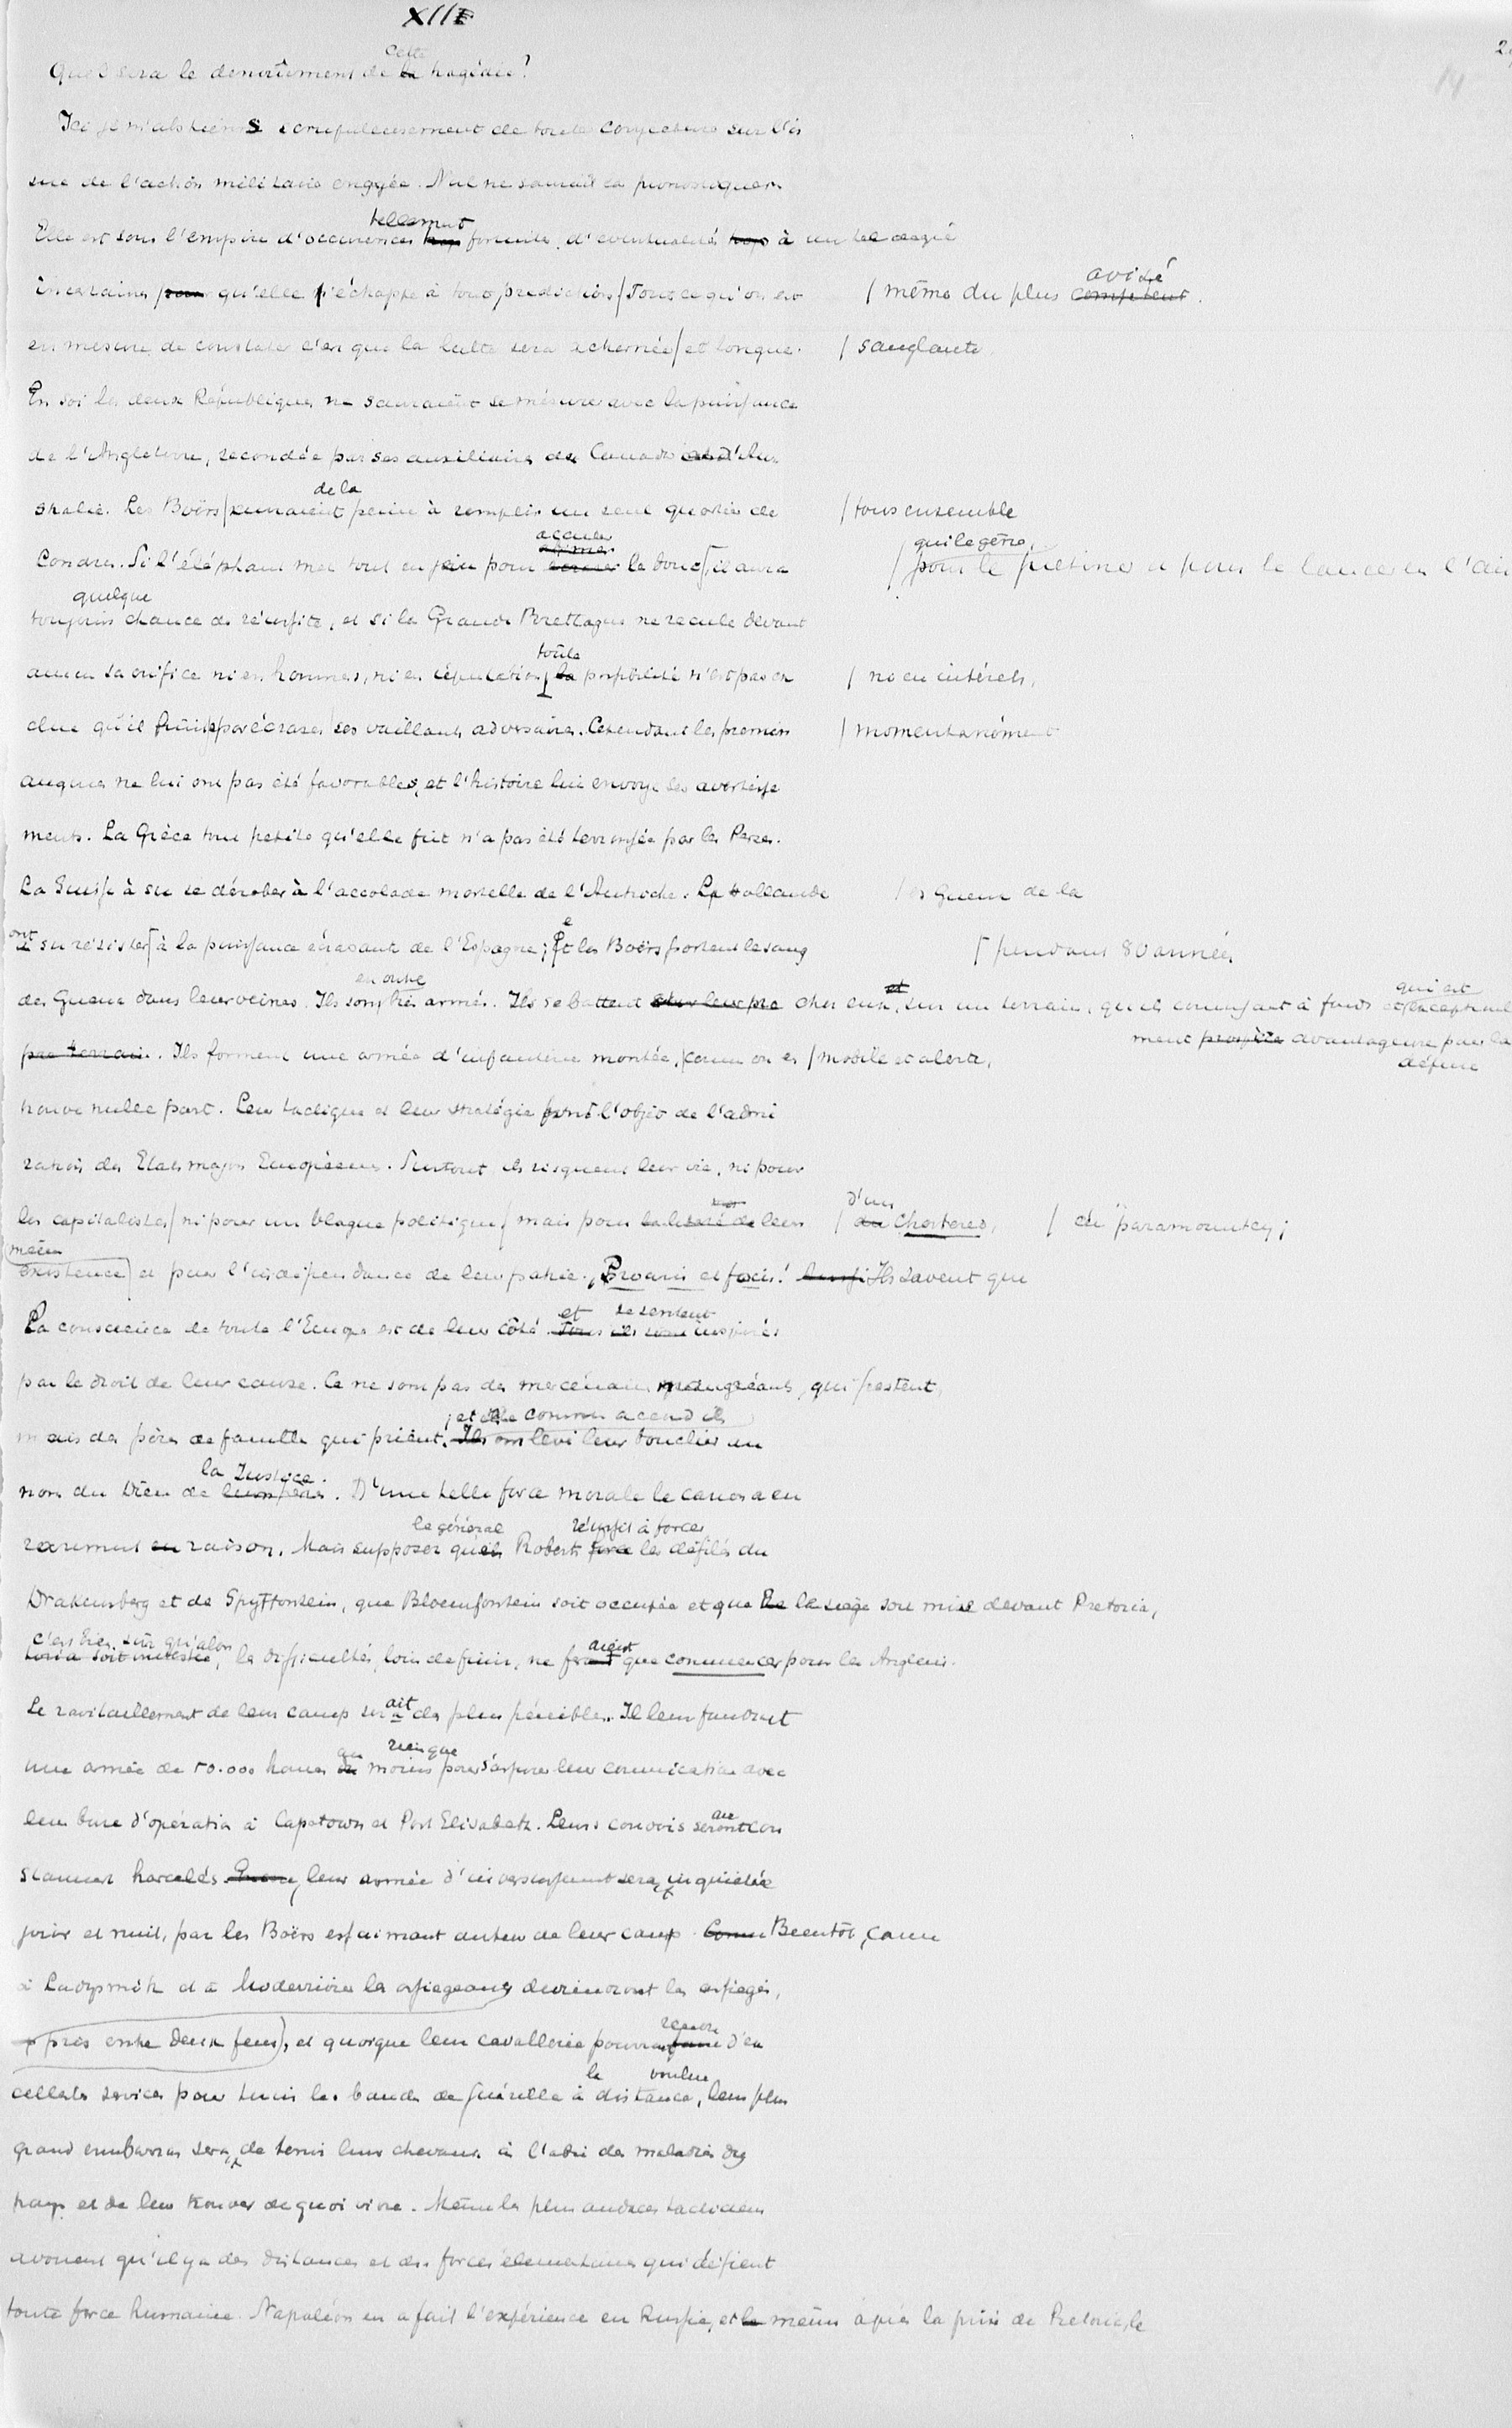 XIII
29
14
Quel sera le denoûtement de la cette tragédie?
Ici je m'abstiens scrupuleusement de toute conjecture sur l'is
sue de l'action militaire engagée. Nul ne saurait la pronostiquer.
Elle est sous l'empire d'occurences trop tellement fortuites, d'eventualités trop à un tel degré
incertaines pour qu'elle n'échappe à tout prediction / Tout ce qu'on est / même du plus competent avisé.
en mesure de constater c'est que la lutte sera acharnée / et longue. / sanglante.
En soi les deux Républiques ne sauraient se mésurer avec la puissance
de l'Angleterre, secondée par ses auxiliaires du Canada et d'Au
stralie. Les Boërs / auraient de la peine à remplir un seul quartier de / tous ensemble
Londres. Si l'éléphant met tout en jeu pour acculer le boue, il aura / qui le gêne, pour le piétiner et pour le lancer en l'air
toujours quelque chance de réussite, et si la Grande Brettagne ne recule devant
aucun sacrifice ni en hommes, ni en réputation / la toute possibilité n'est pas ex / ni en intérets,
clue qu'il finisse par écraser / ses vaillants adversaires. Cependant les premiers / momentanément
augures ne lui ont pas été favorables, et l'histoire lui envoye ses avertisse
ments. La Grèce tout petite qu'elle fut n'a pas été terrassée par les Perses.
La Suisse à su se dérober à l'accolade mortelle de l'Autriche. La Hollande / es Gueux de la
ont su résister à la puissance écrasante de l'Espagne; et les Boërs portent le sang / pendant 80 années
des Gueux dans leur veines. Ils sont en outre très armés. Ils se battent sur leur pro chez eux, et sur un terrain, qu'ils connaissent à fonds et qui est exceptionnel
pre terrain. Ils forment une armée d'infanterie montée, / comme on en / mobile et alerte, ment propice avantageux pour la défense
trouve nulle part. Leur tactique et leur stratégie font l'objet de l'admi
ration des Etats majors Européens. Surtout ils risquent leur vie, ni pour
les capitalistes / ni pour un blague politique / mais pour la liberté de leur / du d'un Chartered, / du "paramountcy;
même existence et pour l'indépendance de leur patrie. Pro aris et focis! Ils savent que
La conscience de toute l'Europe est de leur côté. Tous ils sont et se sentent inspirés
par le droit de leur cause. Ce ne sont pas des mercenaires maugréants, qui pestent,
mais des pères de famille qui prient. Ils ont ; et de commun accord ils levé leur bouclier au
nom du Dieu de leurs pères la Justice. D'une telle force morale le canon a eu
rarement en raison. Mais supposer qu'en le général Roberts force réussit à forcer les défilés du
Drakensberg et de Spytfontein, que Bloemfontein soit occupée et que le siège soit mise devant Pretoria,
toria soit investie c'est bien sûr qu'alors, les difficultés, loin de finir, ne feraient que commencer pour les Anglais.
Le ravitaillement de leur camps serait des plus pénibles. Il leur faudrait
une armée de 50.000 homes au moins rien que pour s'assurer leur comunication avec
leur base d'opération à Capetown et Port Elisabeth. Leurs convois seront con
stamment harcelés, leur armée d'investissement sera inquiétée
jour et nuit, par les Boërs essaimant autour de leur camp. Comm Bientôt, comme
à Ladysmith et à Modderrivier les assiégeants deviendront les assiégés,
pris entre deux feux, et quoique leur cavallerie pourra faire rendre d'ex
cellents services pour tenir les bandes de guérilla à le distance voulue, leur plus
grand embarras sera de tenir leur chevaux à l'abri des maladies du
pays et de leur trouver de quoi vivre. Même les plus audaces tacticiens
avouent qu'il y a des distances et des forces élementaires qui défient
toute force humaine. Napoléon en a fait l'expérience en Russie, et le même après la prise de Pretoria, le